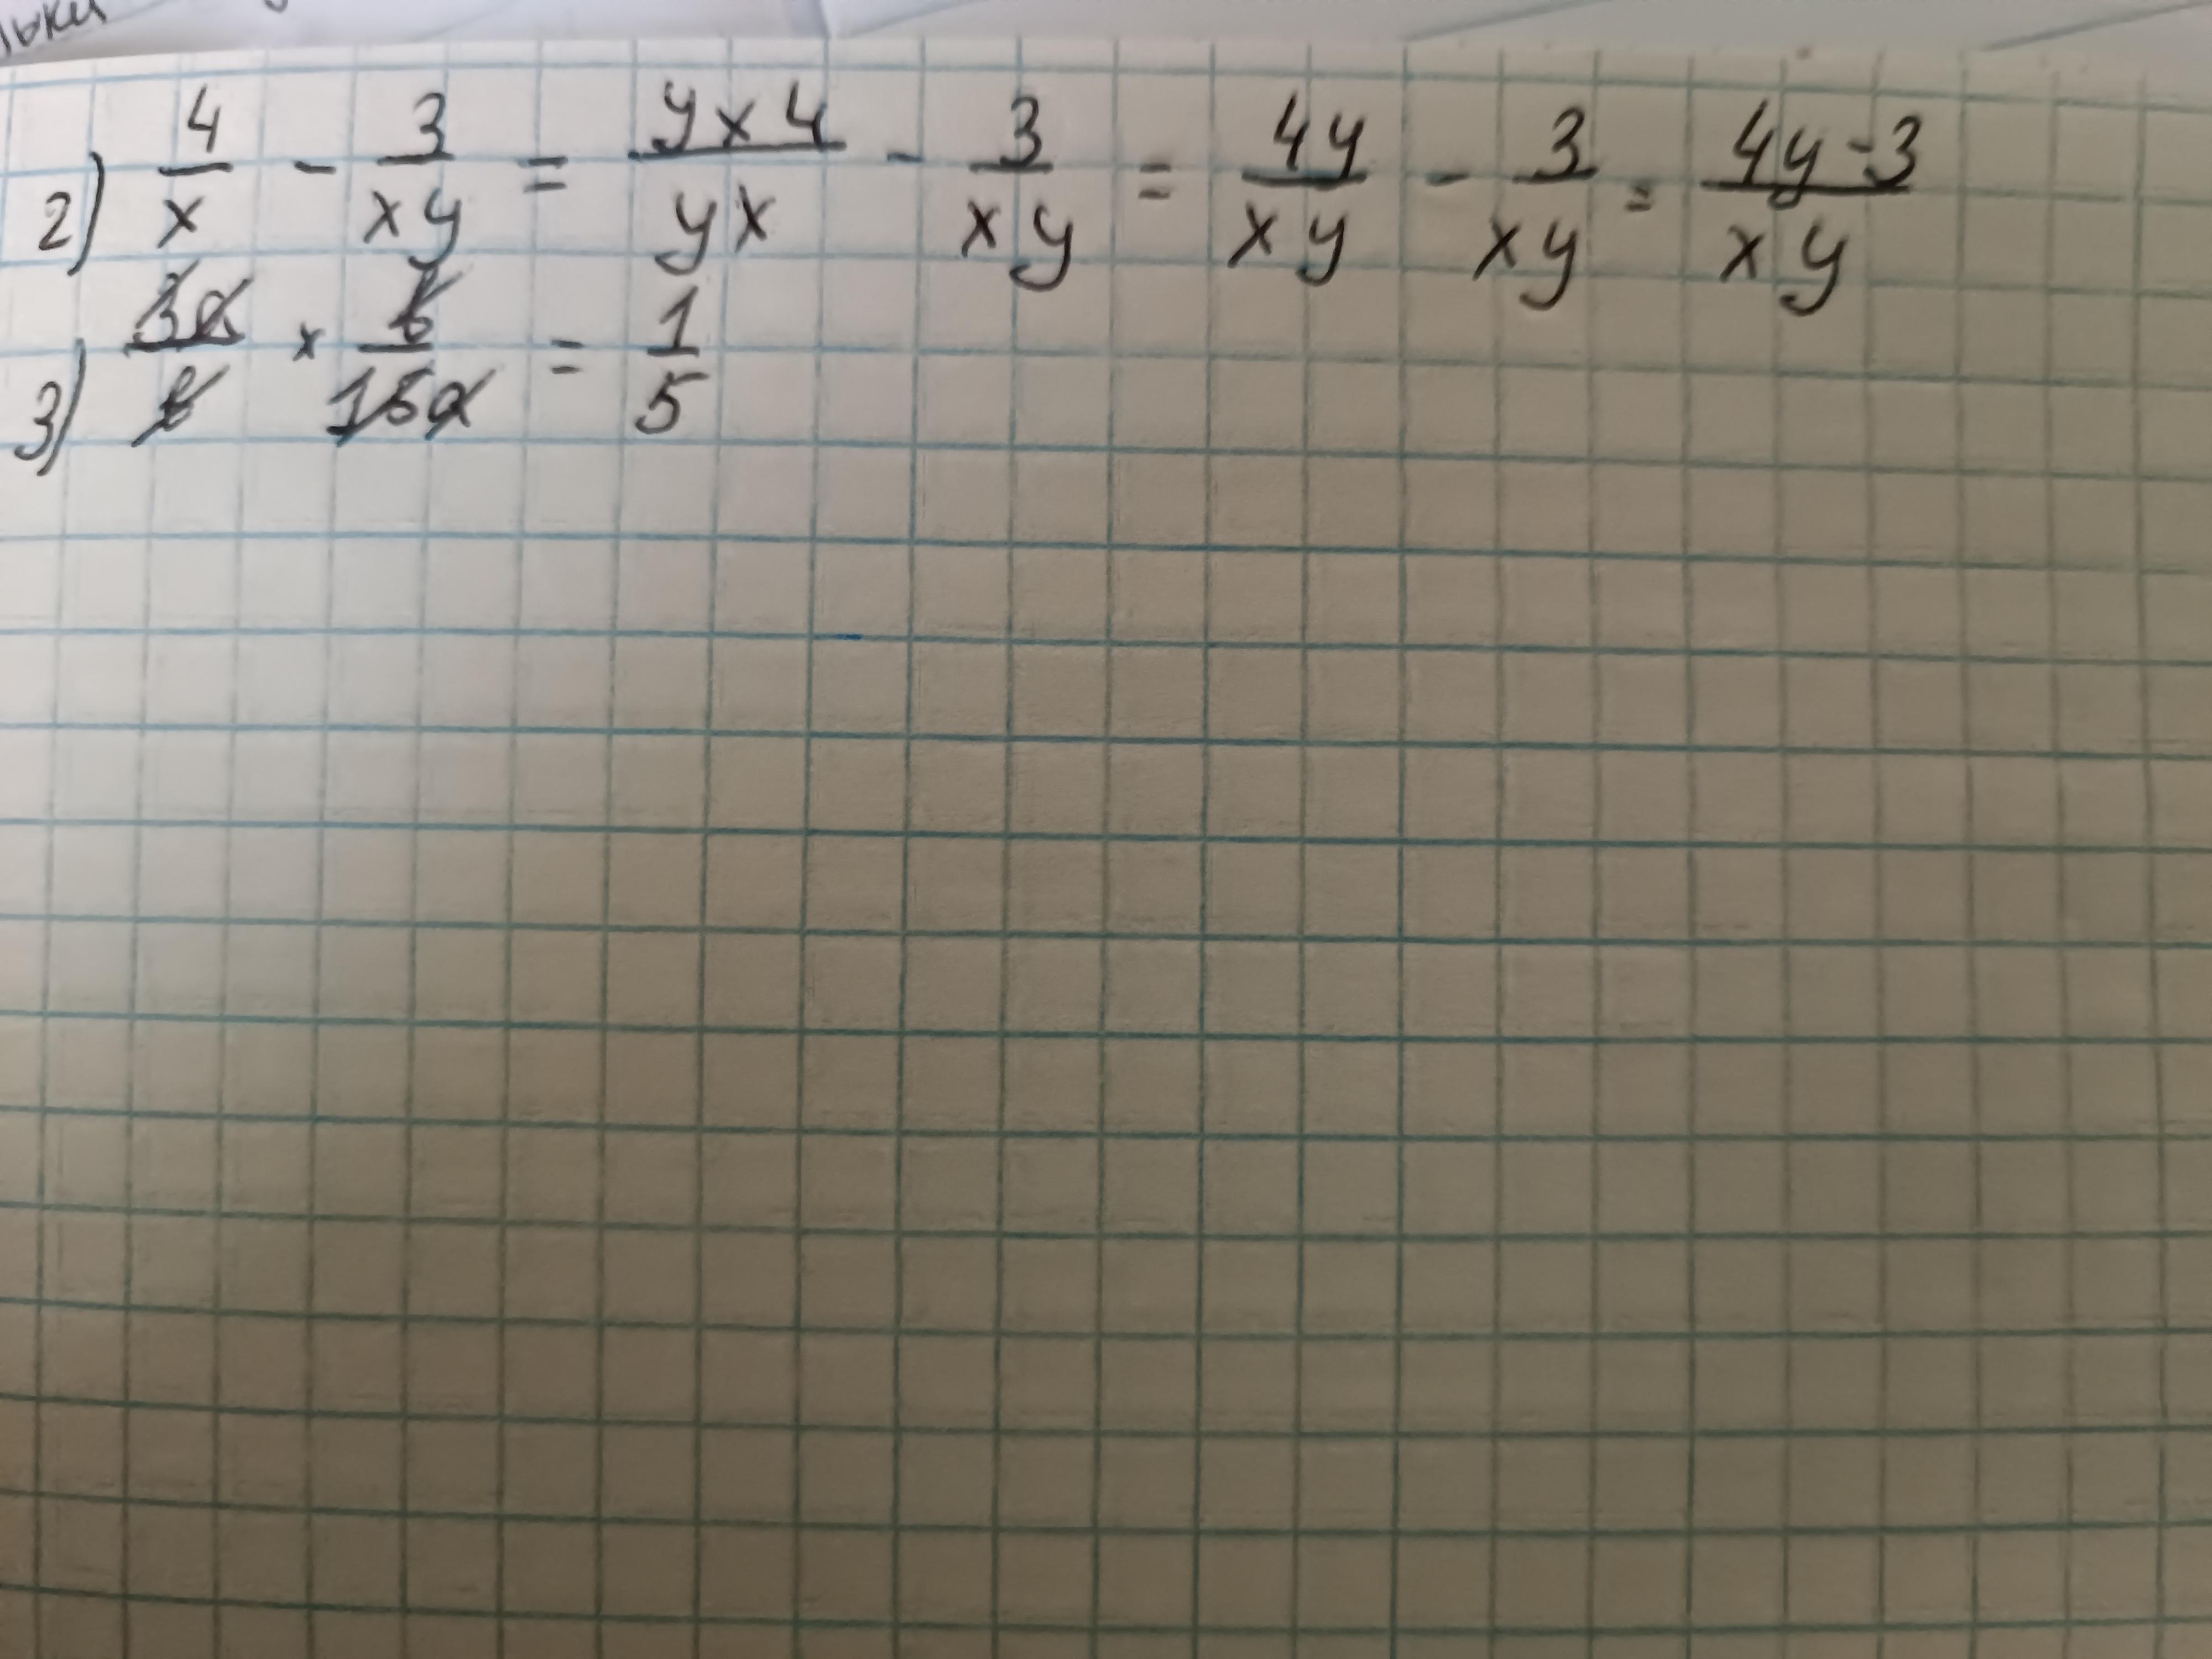 2) 4/x - 3/xy = y×4/yx - 3/xy = 4y/xy - 3/xy = 4y-3/xy
3) 3a/b × b/15a = 1/5